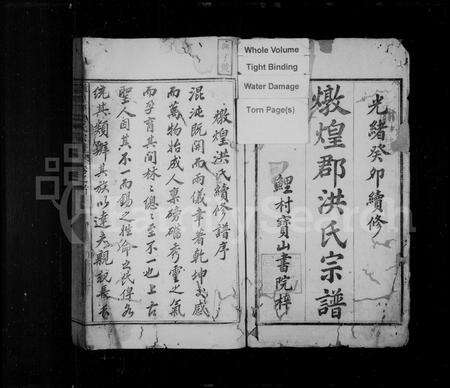 Whole Volume
Tight Binding
Water Damage
Torn Page(s)
光緒癸卯續修
燉煌郡洪氏宗譜
鯉村寶山書院梓
燉煌洪氏續修譜序
混沌既開而兩儀章著乾坤交感
而萬物始成人稟磅礴秀靈之氣
而孕育其間林〻總〻至不一也上古
聖人因其不一而錫之姓
統其類辨其族以達